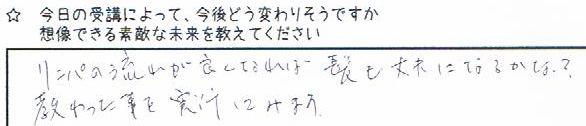 ☆ 今日の受講によって、今後どう変わりそうですか
想像できる素敵な未来を教えてください
リンパの流れが良くなれば 髪も丈夫になるかな?
教わった事を実行してみます